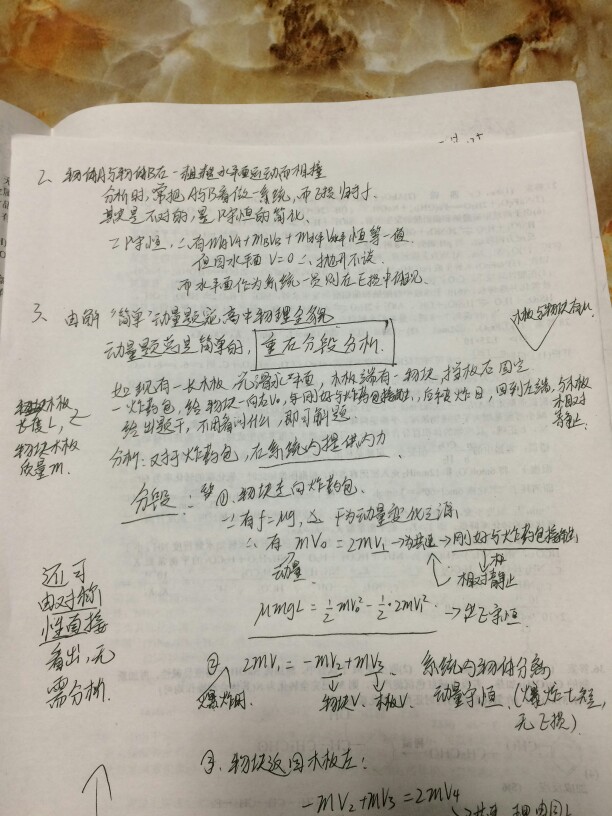 2、物体A与物体B在一粗糙水平面运动而相撞
分析时,常把A与B看做一系统,而E损归于f.
其实是不对的,是P守恒的简化.
∵P守恒,∴有mAVA+mBVB+m水平V水平恒等一值
但因水平面V=0∴抛开不谈.
而水平面作为系统一员则在E损中体现.
3、由解"简单"动量题窥高中物理全貌
动量题总是简单的,重在分段分析.
木板与物块有μ.
如现有一长木板 光滑水平面,木板端有一物块 挡板右固定
一炸药包,给物块一向右V0,牟刚好与炸药包接触,后填炸日,回到左端,与木板相对静止.
给出题干,不用看问什么,即可解题
物块木板
长度L,
物块木板
质量m.
分析:对于炸药包,在系统内提供内力.
分段:
①.物块走向炸药包.
∵有f=μg, F为动量变化之源
∴有 mV0=2mV1→为共速→刚好与炸药包接触
相对静止
动量.
μmgL=½mV0²-½·2mV1²→E守恒
还可
由对称
性直接
看出,无
需分析.
② 2mV1=-mV2+mV3. 系统内物体分离
爆炸时 物块V. 木板V. 动量守恒 (爆炸t短,
无E损)
③.物块返回木板左:
-mV2+mV3=2mV4